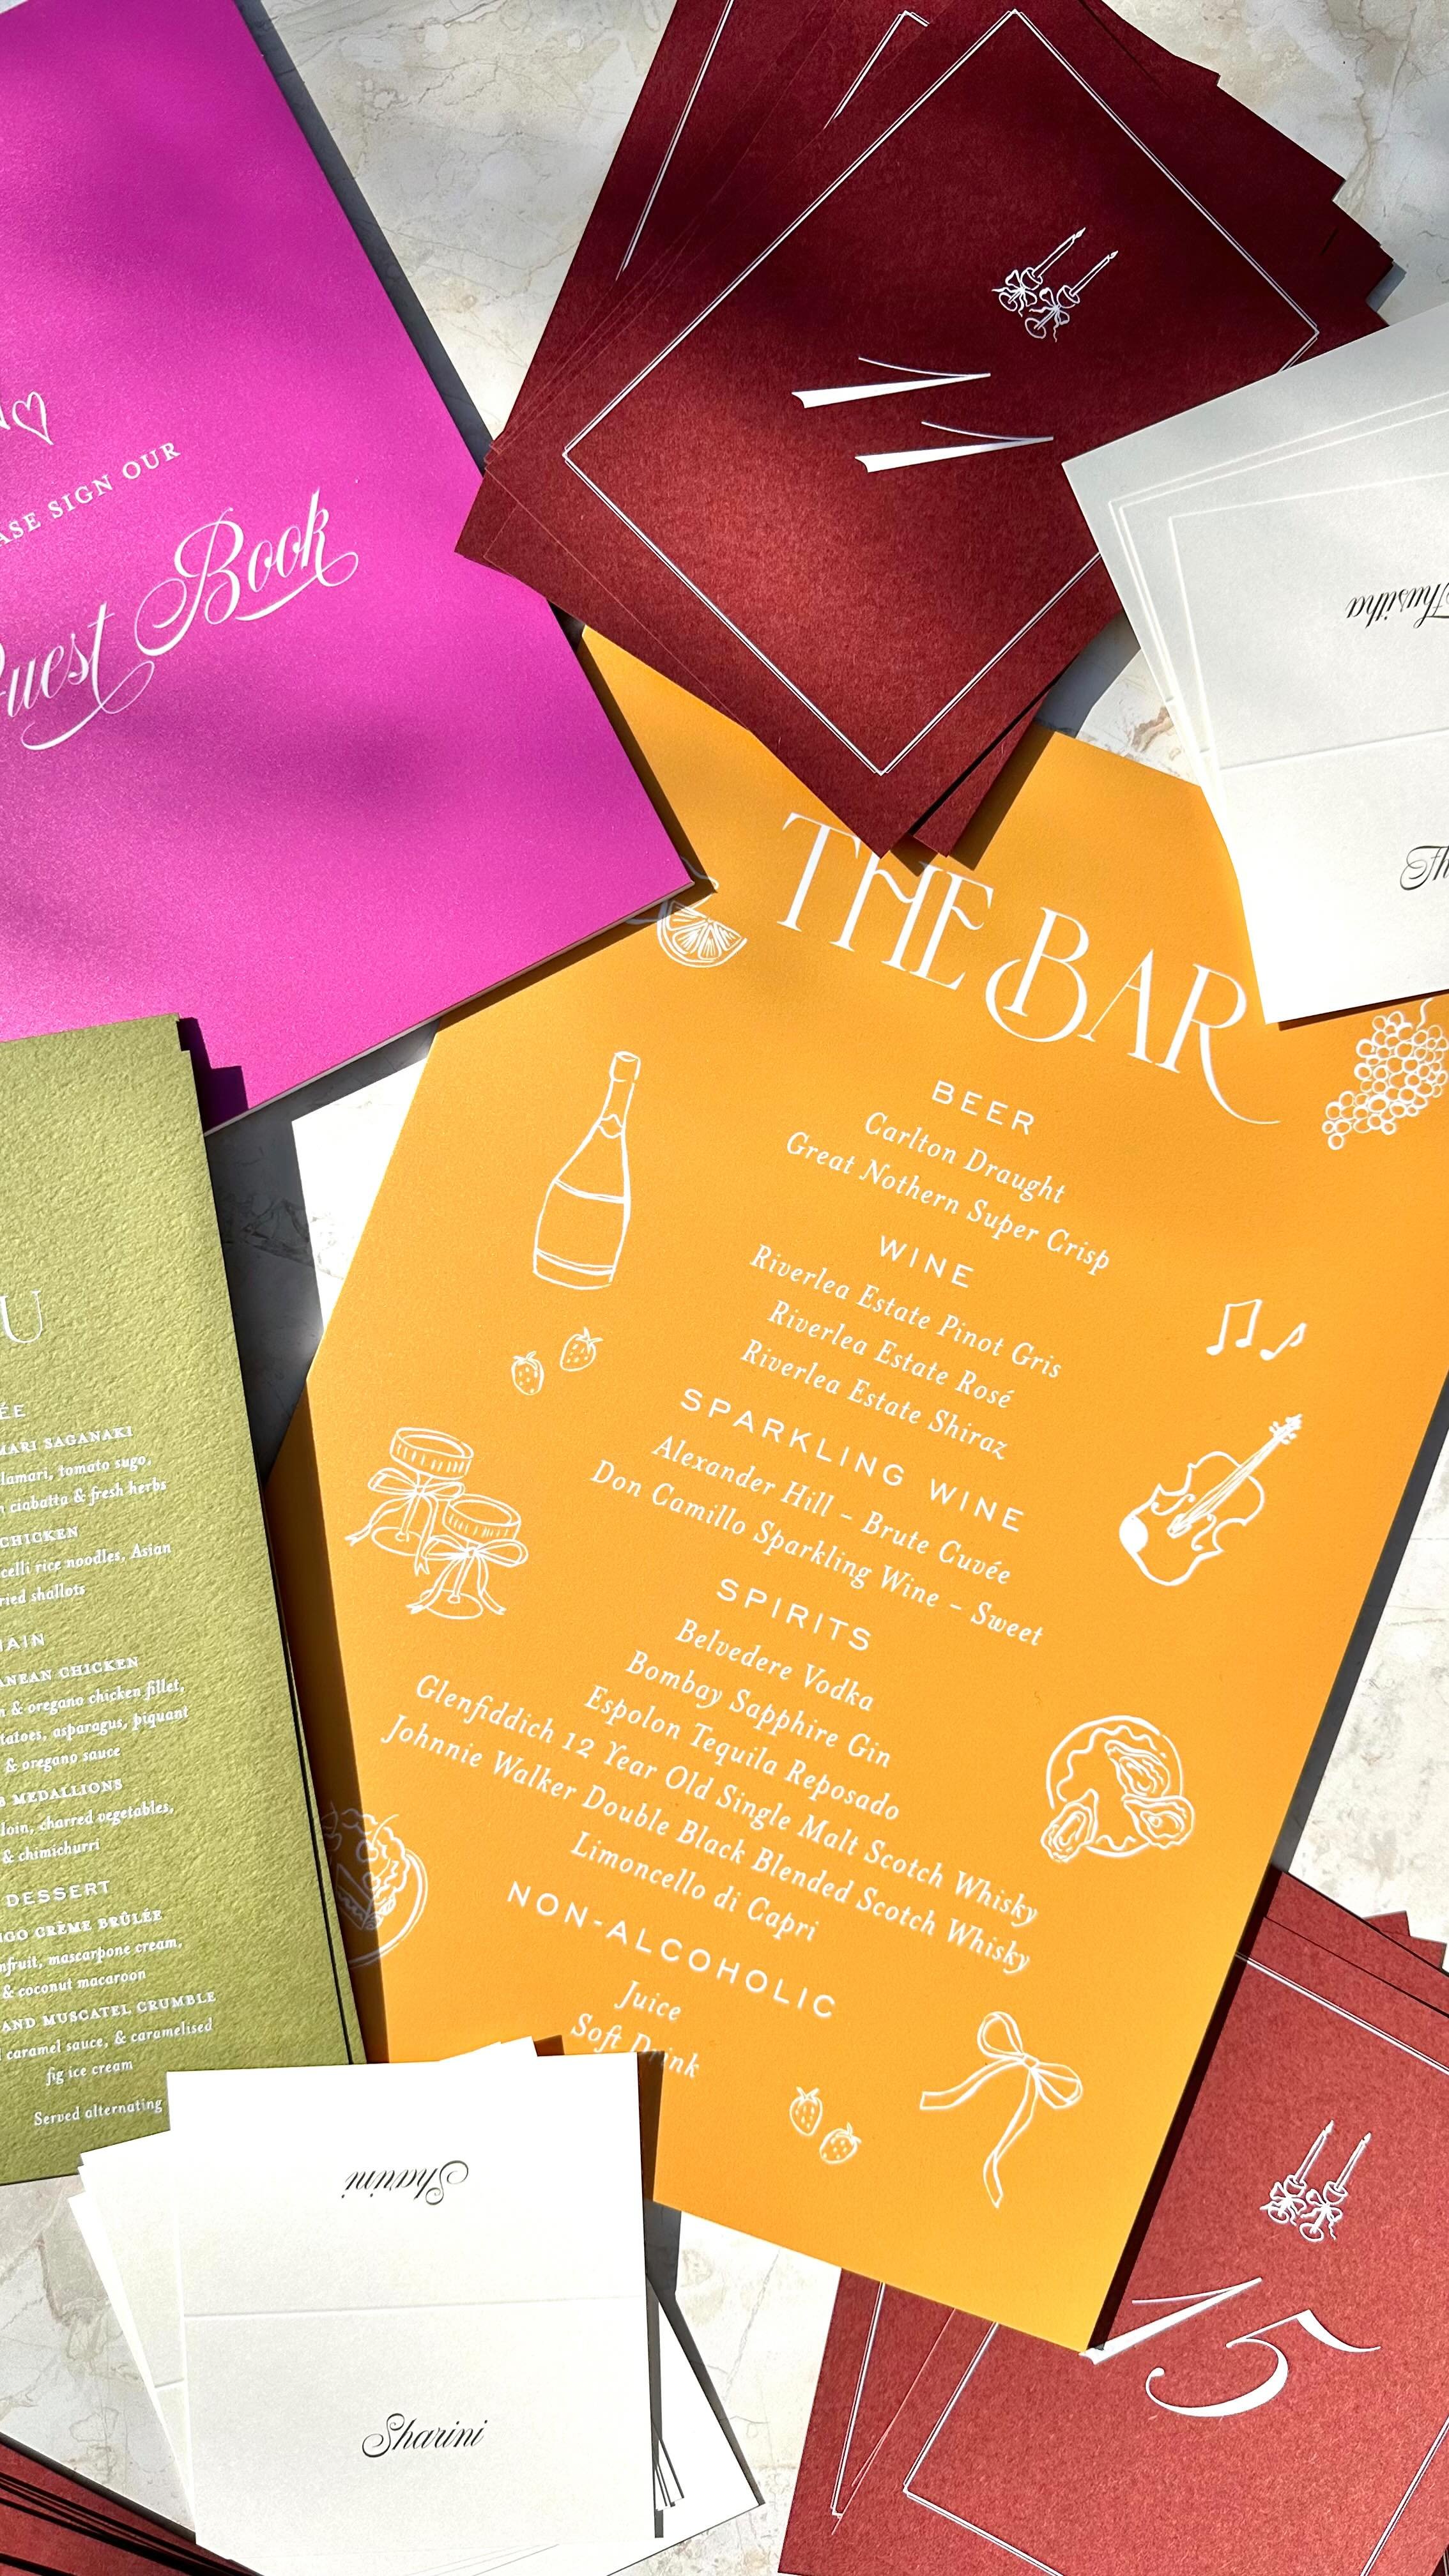 SIGN OUR
Book
11
Thusitha
THE BAR
BEER
Carlton Draught
Great Nothern Super Crisp
WINE
Riverlea Estate Pinot Gris
Riverlea Estate Rosé
Riverlea Estate Shiraz
SPARKLING WINE
Alexander Hill – Brute Cuvée
Don Camillo Sparkling Wine – Sweet
SPIRITS
Belvedere Vodka
Bombay Sapphire Gin
Espolon Tequila Reposado
Glenfiddich 12 Year Old Single Malt Scotch Whisky
Johnnie Walker Double Black Blended Scotch Whisky
Limoncello di Capri
NON-ALCOHOLIC
Juice
Soft Drink
SAGANAKI
tomato sugo,
ciabatta & fresh herbs
CHICKEN
rice noodles, Asian
shallots
CHICKEN
& oregano chicken fillet,
asparagus, piquant
& oregano sauce
MEDALLIONS
charred vegetables,
& chimichurri
DESSERT
CRÈME BRÛLÉE
mascarpone cream,
& coconut macaroon
AND MUSCATEL CRUMBLE
caramel sauce, & caramelised
fig ice cream
Served alternating
Sharini
Sharini
15